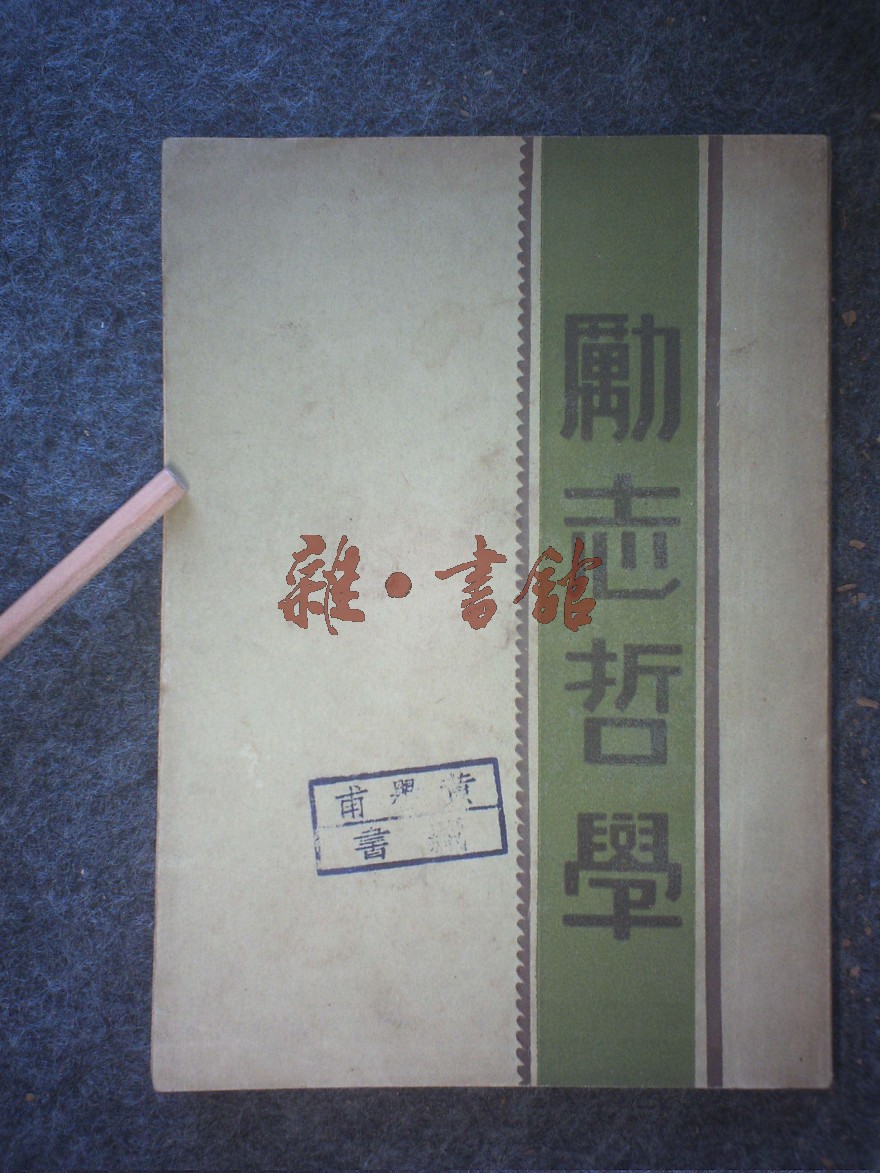 勵志哲學
雜·書館
黄興甫
藏書